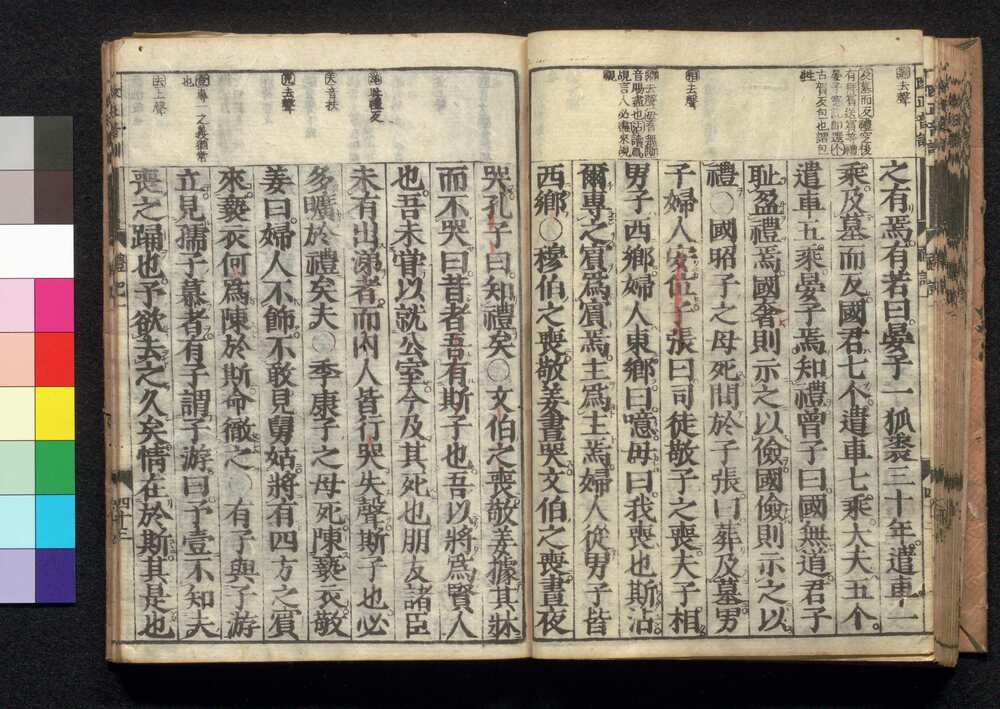 之有焉有若曰晏子一狐裘三十年遣車一
乘及墓而反國君七个遣車七乘大夫五个
遣車五乘晏子焉知禮曾子曰國無道君子
恥盈禮焉國奢則示之以儉國儉則示之以
禮〇國昭子之母死問於子張曰葬及墓男
子婦人安位子張曰司徒敬子之喪夫子相
男子西鄉婦人東鄉曰噫毋曰我喪也斯沾
爾專之賓為賓焉主為主焉婦人從男子皆
西鄉〇穆伯之喪敬姜晝哭文伯之喪晝夜
哭孔子曰知禮矣〇文伯之喪敬姜據其牀
而不哭曰昔者吾有斯子也吾以將為賢人
也吾未甞以就公室今及其死也朋友諸臣
未有出涕者而內人皆行哭失聲斯子也必
多曠於禮矣夫〇季康子之母死陳褻衣敬
姜曰婦人不飾不敢見舅姑將有四方之賓
來褻衣何為陳於斯命徹之〇有子與子游
立見孺子慕者有子謂子游曰予壹不知夫
喪之踊也予欲去之久矣情在於斯其是也
去聲
相去聲
夫音扶
去聲
去上聲
禮記
四十三